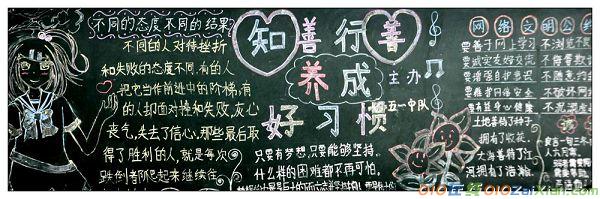 不同的态度不同的结果
不同的人对待挫折
和失败的态度不同,有的人
把它当作前进中的阶梯,有
的人却面对挫和失败,灰心
丧气,失去了信心,那些最后取
得了胜利的人,就是每次
跌倒都能爬起来继续往
知善行善
养成
主办
五一中队
好习惯
只要有梦想,只要能够坚持,
什么样的困难都不再可怕,
网络文明公约
要善于网上学习 不浏览不良
要诚实友好交流 不侮辱欺诈
要增强自护意识 不随意约会
要维护网络安全 不破坏网络
要有益身心健康 不沉溺虚拟
土地善待了种子
拥有了收获,
大海善待了江
河拥有了浩瀚,
010在线 010ZaiXian.com